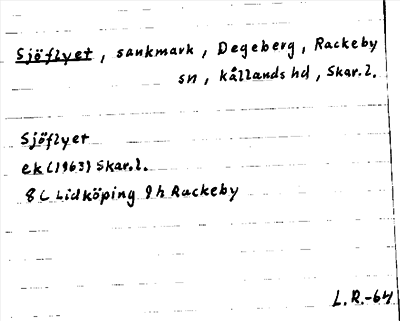 Sjöflyet, sankmark, Degeberg, Rackeby
sn, kållands hd, Skar.l.
Sjöflyet
ek (1963) Skar.l.
8C Lidköping 9h Rackeby
L.R.-64